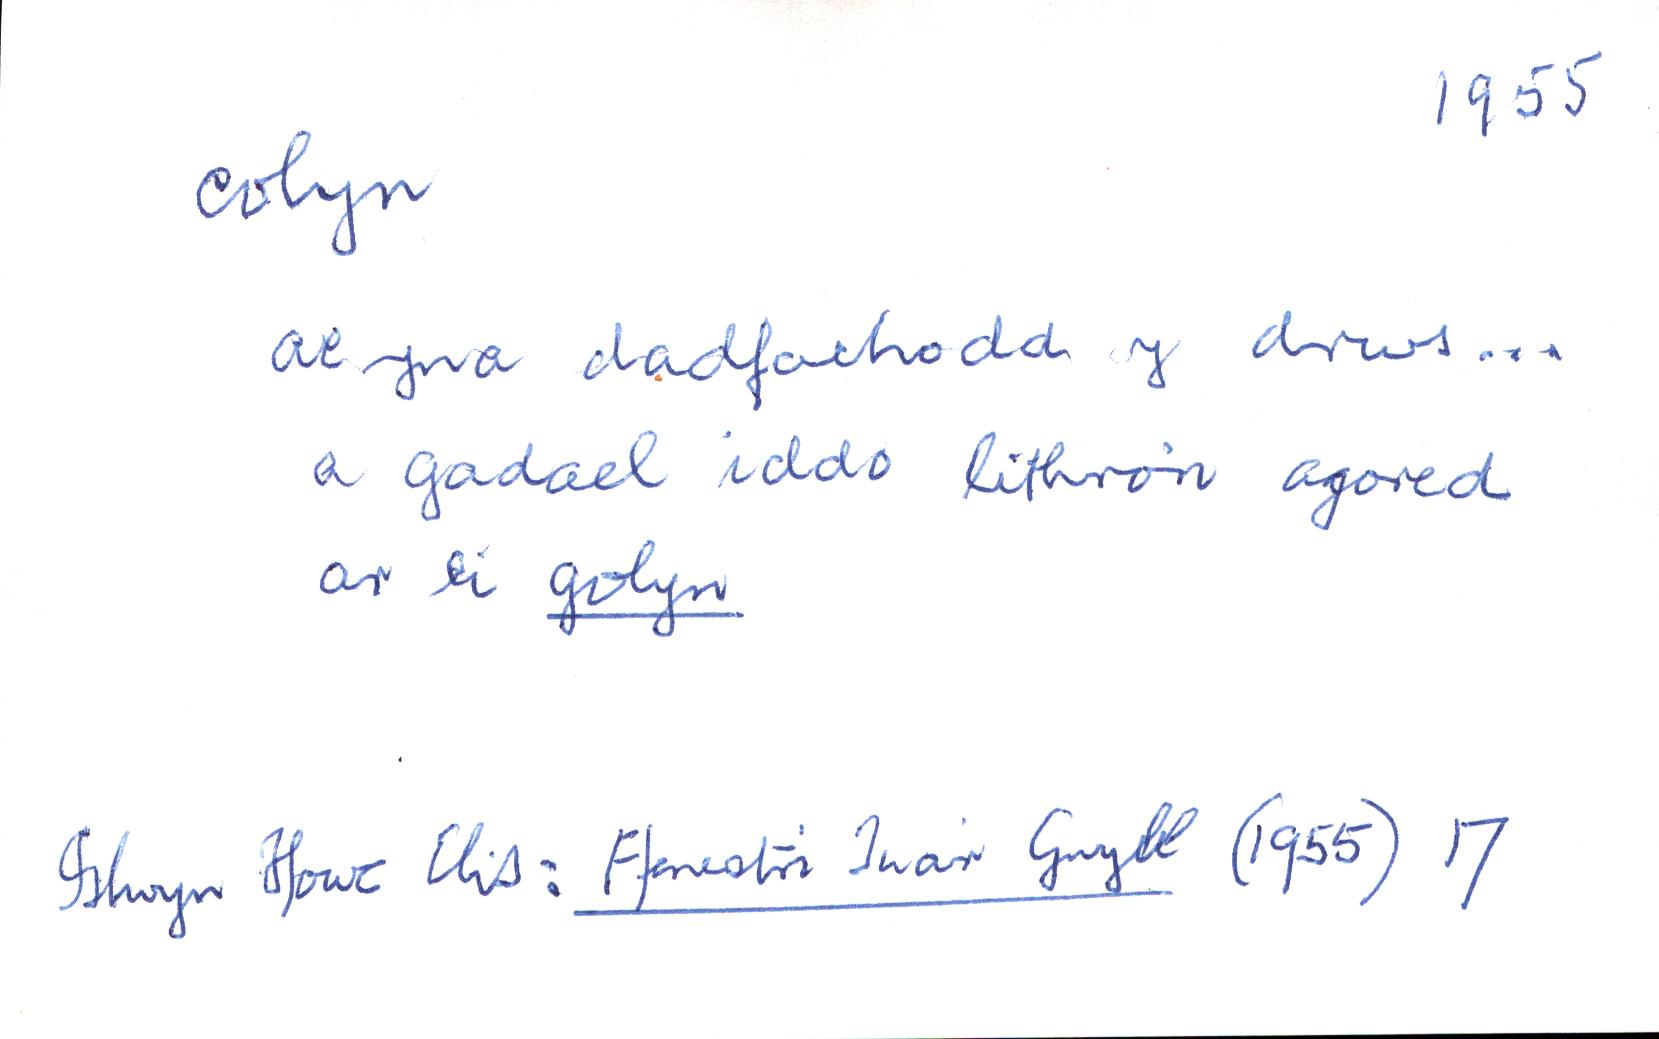 1955
colyn
ac yna dadfachodd y drws...
a gadael iddo lithro'n agored
ar ei golyn
Islwyn Ffowc Elis: Ffenestri Tua'r Gwyll (1955) 17